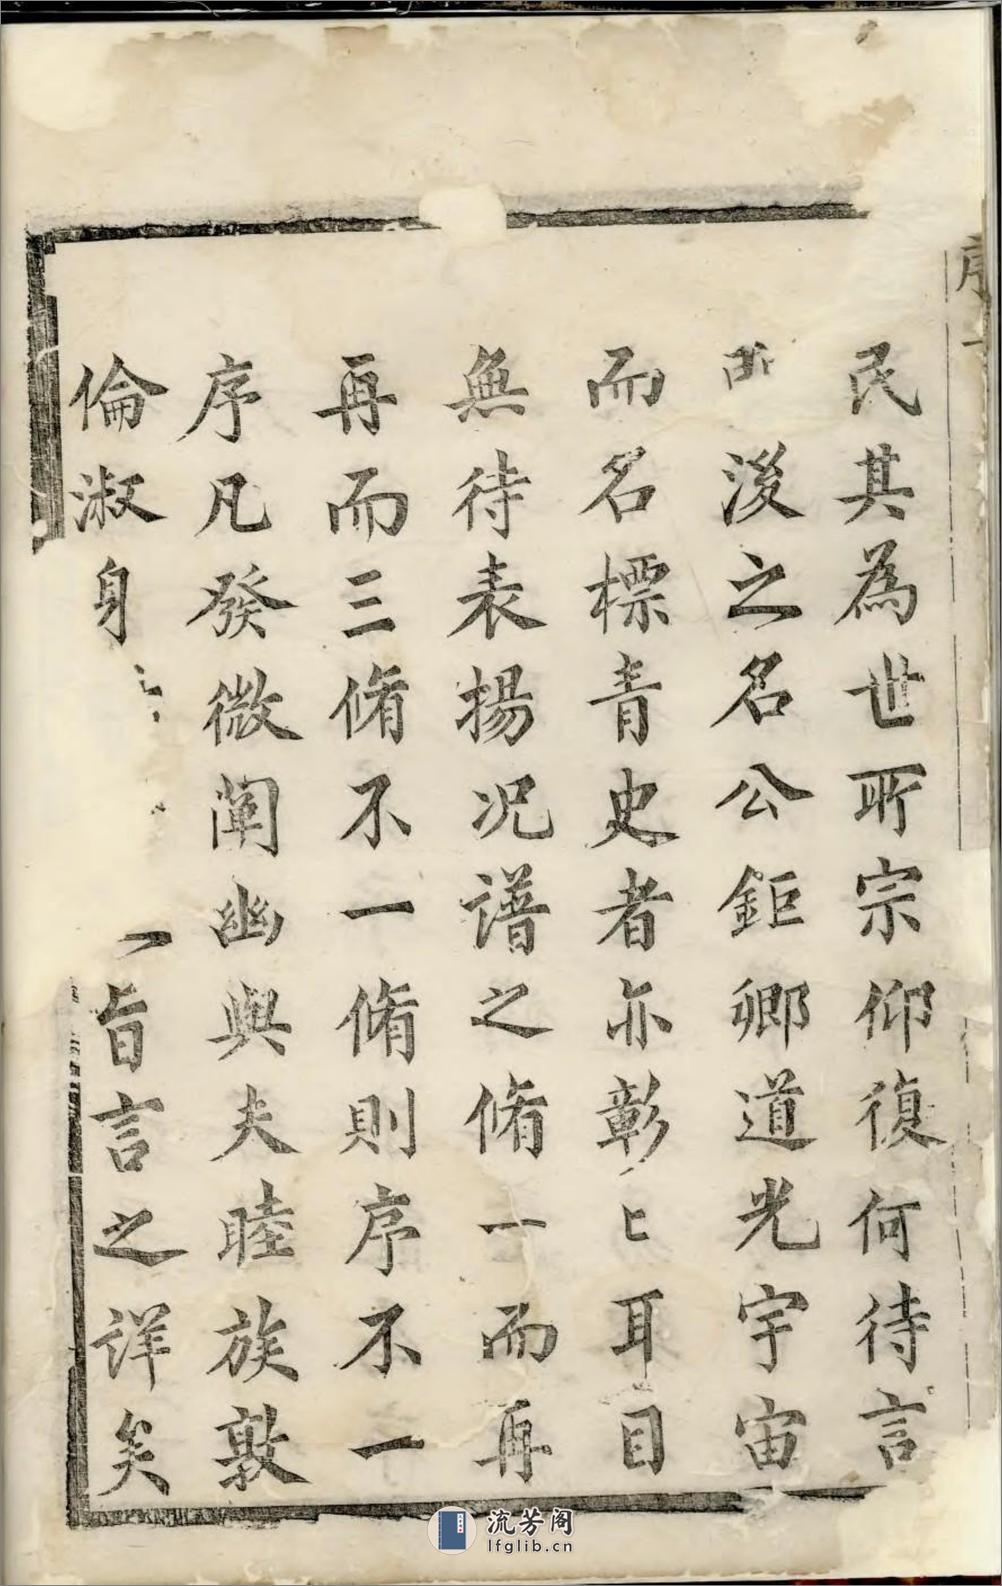 序
民其為世所宗仰復何待言
淩之名公鉅卿道光宇宙
而名標青史者亦彰〻耳目
無待表揚况譜之脩一而再
再而三脩不一脩則序不一
序凡發微闡幽與夫睦族敦
倫淑身旨言之详矣
流芳阁
lfglib.cn